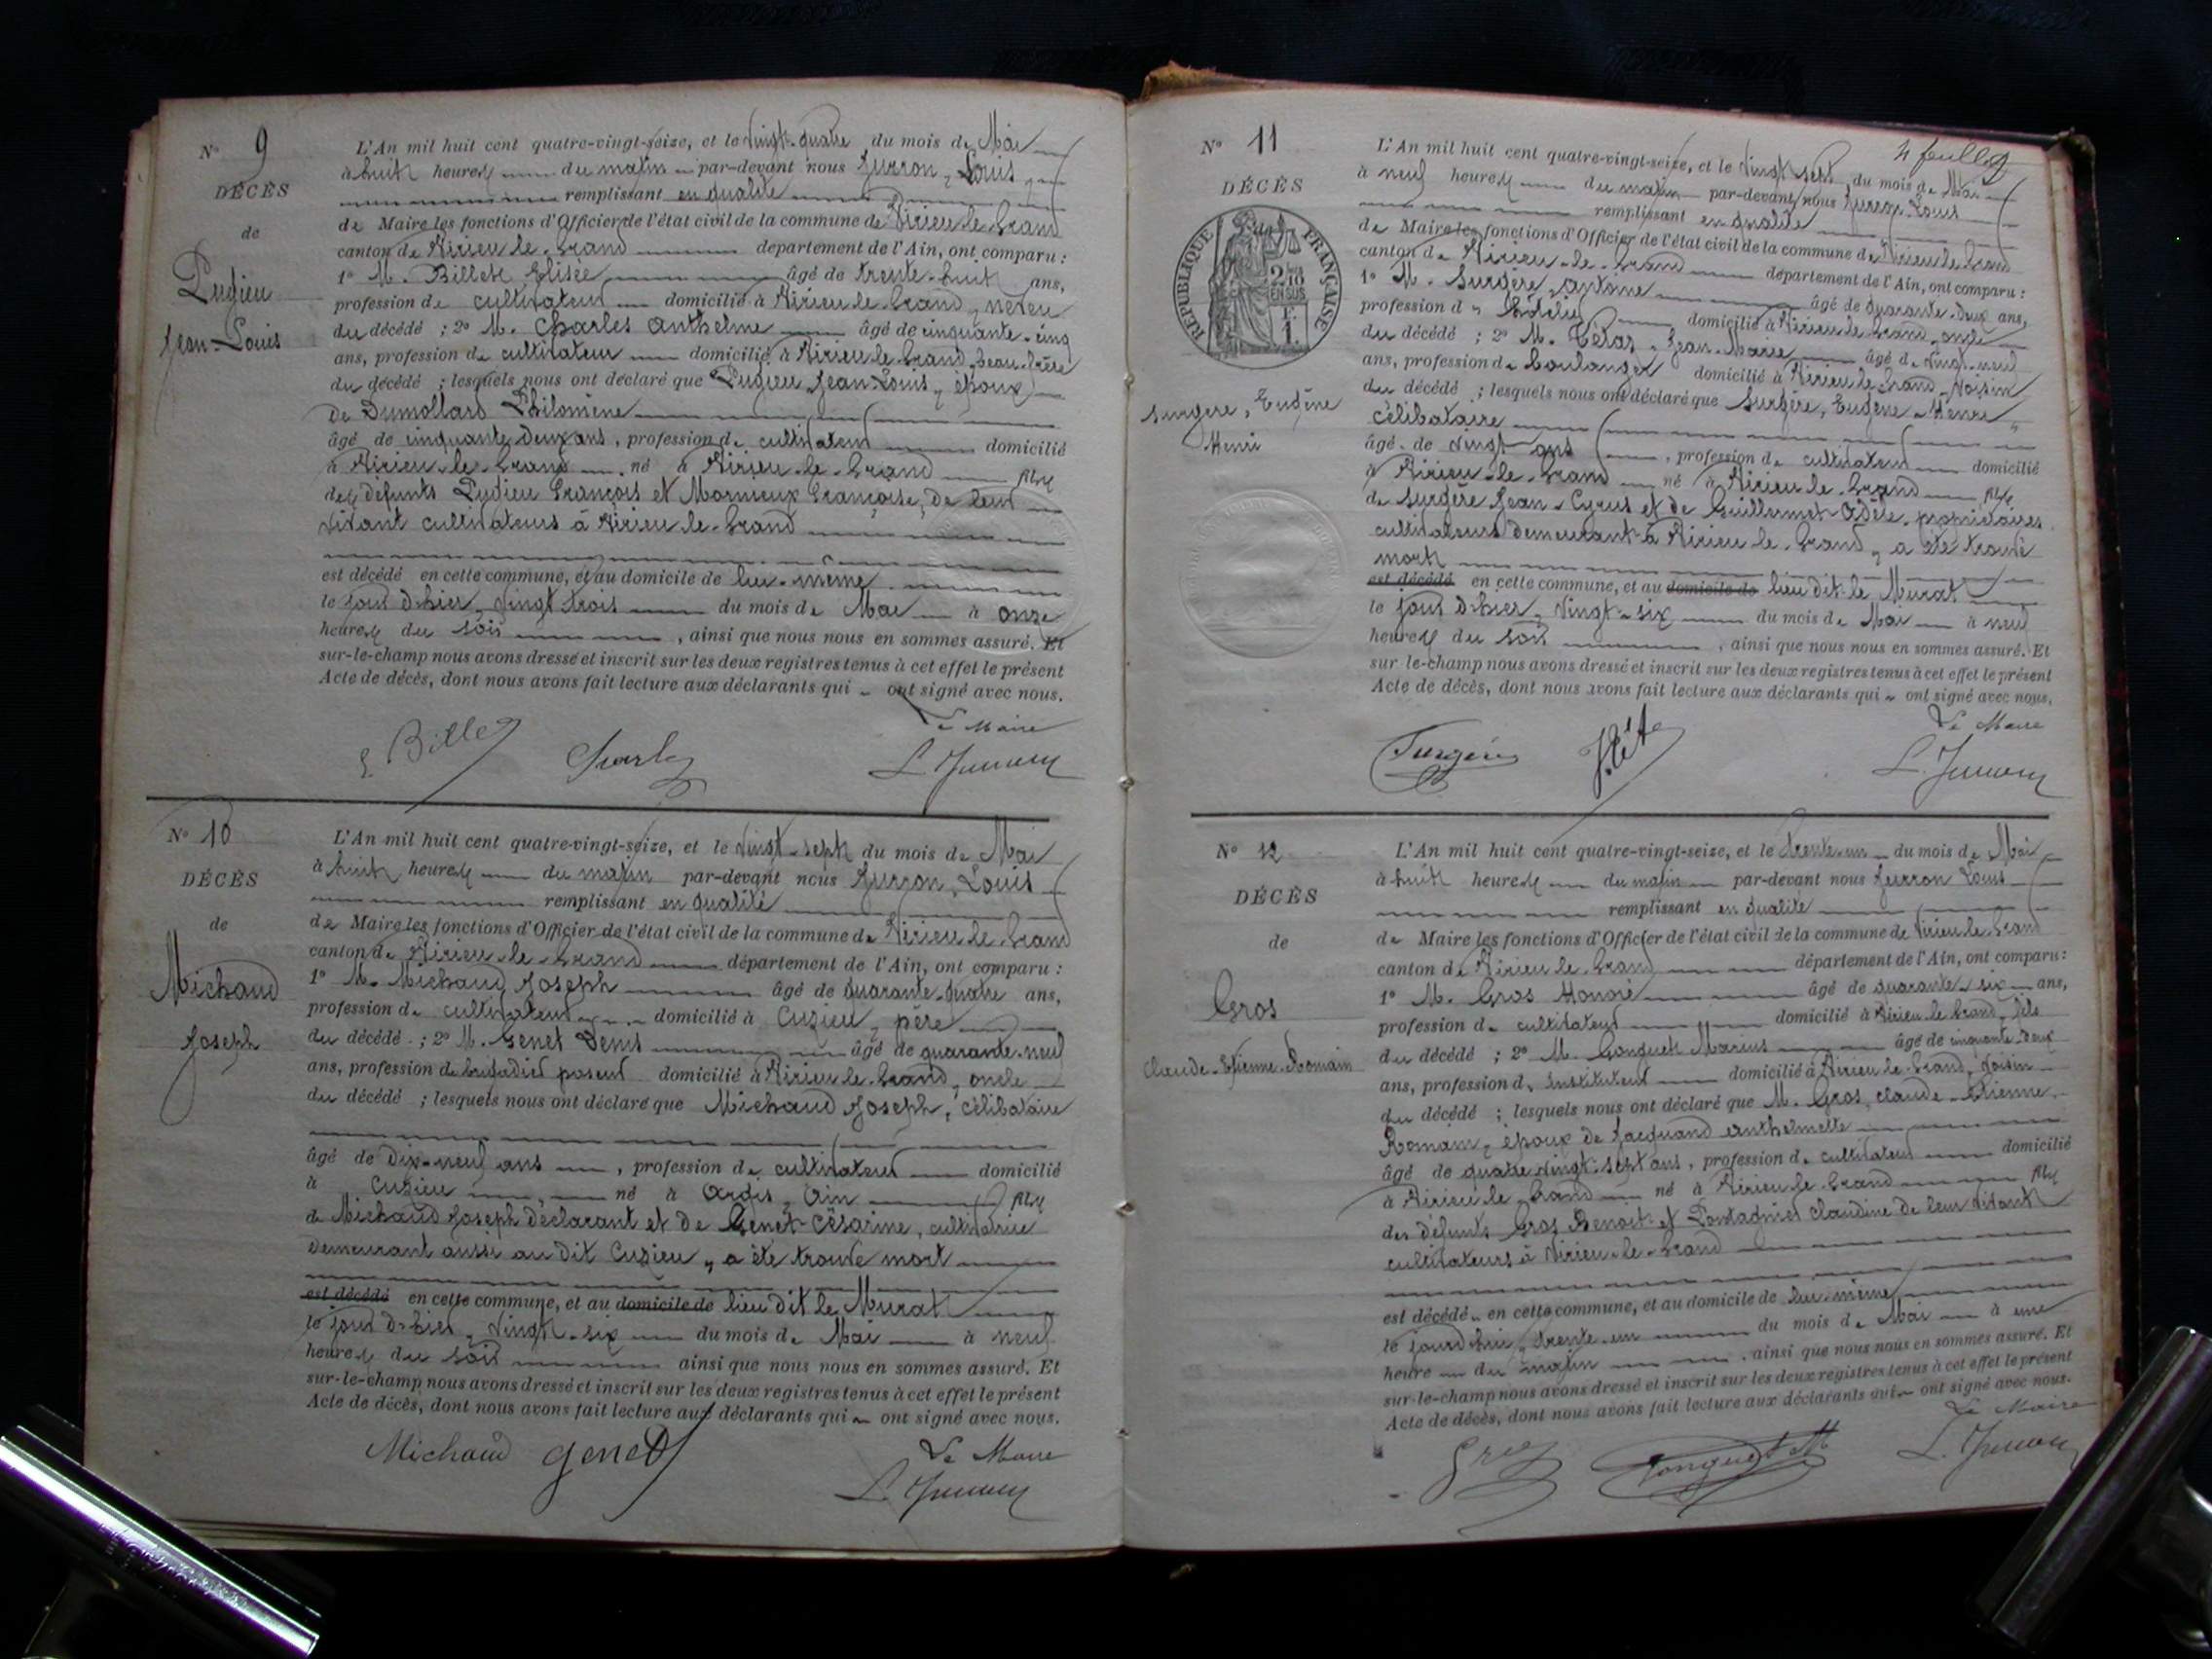 N° 9
DÉCÈS
de
Pugieu
Jean-Louis
L'An mil huit cent quatre-vingt-seize, et le vingt-quatre du mois de Mai
à huit heures du matin par-devant nous Jurron, Louis
remplissant en qualité
de Maire les fonctions d'Officier de l'état civil de la commune de Virieu-le-Grand
canton de Virieu-le-Grand département de l'Ain, ont comparu :
1° M. Billet Elisée âgé de trente-huit ans,
profession de cultivateur domicilié à Virieu-le-Grand, neveu
du décédé ; 2° M. Charles Anthelme âgé de cinquante-cinq
ans, profession de cultivateur domicilié à Virieu-le-Grand, beau-frère
du décédé ; lesquels nous ont déclaré que Pugieu Jean-Louis, époux
de Dumollard Philomène
âgé de cinquante deux ans, profession de cultivateur domicilié
à Virieu-le-Grand né à Virieu-le-Grand fils
des défunts Pugieu François et Mornieux Françoise, de leur
vivant cultivateurs à Virieu-le-Grand
est décédé en cette commune, et au domicile de lui-même
le jour d'hier, vingt trois du mois de Mai à onze
heures du soir, ainsi que nous nous en sommes assuré. Et
sur-le-champ nous avons dressé et inscrit sur les deux registres tenus à cet effet le présent
Acte de décès, dont nous avons fait lecture aux déclarants qui ont signé avec nous.
Le Maire
E Billet Charles L. Jurron
N° 10
DÉCÈS
de
Michaud
Joseph
L'An mil huit cent quatre-vingt-seize, et le vingt-sept du mois de Mai
à huit heures du matin par-devant nous Jurron, Louis
remplissant en qualité
de Maire les fonctions d'Officier de l'état civil de la commune de Virieu-le-Grand
canton de Virieu-le-Grand département de l'Ain, ont comparu :
1° M. Michaud Joseph âgé de quarante-quatre ans,
profession de cultivateur domicilié à Cuzieu, père
du décédé ; 2° M. Genet Denis âgé de quarante-neuf
ans, profession de brigadier poseur domicilié à Virieu-le-Grand, oncle
du décédé ; lesquels nous ont déclaré que Michaud Joseph, célibataire
âgé de dix-neuf ans, profession de cultivateur domicilié
à Cuzieu né à Ordis, Ain fils
de Michaud Joseph déclarant et de Genet Césarine, cultivatrice
demeurant aussi au dit Cuzieu, a été trouvé mort
est décédé en cette commune, et au domicile de lieu dit le Murat
le jour d'hier, vingt-six du mois de Mai à neuf
heures du soir ainsi que nous nous en sommes assuré. Et
sur-le-champ nous avons dressé et inscrit sur les deux registres tenus à cet effet le présent
Acte de décès, dont nous avons fait lecture aux déclarants qui ont signé avec nous.
Michaud Genet Le Maire
L. Jurron
4 feuillet
N° 11
DÉCÈS
de
RÉPUBLIQUE FRANÇAISE
2/10 EN SUS
F. 1.
Surgère, Eugène
Henri
L'An mil huit cent quatre-vingt-seize, et le vingt sept du mois de Mai
à neuf heures du matin par-devant nous Jurron Louis
remplissant en qualité
de Maire les fonctions d'Officier de l'état civil de la commune de Virieu le Grand
canton de Virieu-le-Grand département de l'Ain, ont comparu :
1° M. Surgère, Antoine âgé de quarante-deux ans,
profession d' hôtelier domicilié à Virieu le Grand, oncle
du décédé ; 2° M. Tétaz, Jean-Marie âgé de vingt-neuf
ans, profession de boulanger domicilié à Virieu le Grand, voisin
du décédé ; lesquels nous ont déclaré que Surgère, Eugène-Henri,
célibataire
âgé de vingt ans, profession de cultivateur domicilié
à Virieu-le-Grand né à Virieu le Grand fils
de Surgère Jean-Cyrus et de Guillermet Adèle, propriétaires
cultivateurs demeurant à Virieu le Grand, a été trouvé
mort
est décédé en cette commune, et au domicile de lieu dit le Murat
le jour d'hier, vingt-six du mois de Mai à neuf
heures du soir, ainsi que nous nous en sommes assuré. Et
sur-le-champ nous avons dressé et inscrit sur les deux registres tenus à cet effet le présent
Acte de décès, dont nous avons fait lecture aux déclarants qui ont signé avec nous.
Le Maire
Surgère L. Jurron
N° 12
DÉCÈS
de
Gros
Claude-Etienne-Romain
L'An mil huit cent quatre-vingt-seize, et le trente-un du mois de Mai
à huit heures du matin par-devant nous Jurron Louis
remplissant en qualité
de Maire les fonctions d'Officier de l'état civil de la commune de Virieu le Grand
canton de Virieu le Grand département de l'Ain, ont comparu :
1° M. Gros Honoré âgé de quarante-six ans,
profession de cultivateur domicilié à Virieu le Grand, fils
du décédé ; 2° M. Gonguet Marius âgé de cinquante-deux
ans, profession d' instituteur domicilié à Virieu le Grand, voisin
du décédé ; lesquels nous ont déclaré que M. Gros, Claude-Etienne-
Romain, époux de Jacquand Anthelmette
âgé de quatre vingt-sept ans, profession de cultivateur domicilié
à Virieu le Grand né à Virieu le Grand fils
des défunts Gros Benoit et Pontagnier Claudine de leur vivant
cultivateurs à Virieu-le-Grand
est décédé en cette commune, et au domicile de lui-même
le jourd'hui, trente-un du mois de Mai à une
heure du matin, ainsi que nous nous en sommes assuré. Et
sur-le-champ nous avons dressé et inscrit sur les deux registres tenus à cet effet le présent
Acte de décès, dont nous avons fait lecture aux déclarants qui ont signé avec nous.
Le Maire
Gros Gonguet M L. Jurron